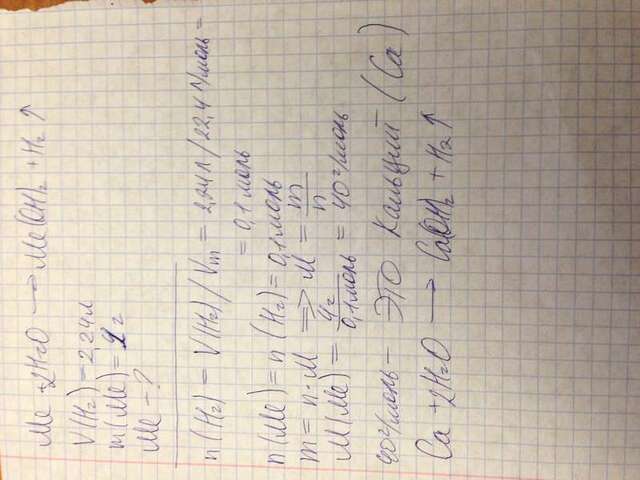 Me + 2H₂O → Me(OH)₂ + H₂↑
V(H₂) = 2,24 л
m(Me) = г
Me - ?
n(H₂) = V(H₂) / Vm = 2,24 л / 22,4 л/моль =
= 0,1 моль
n(Me) = n(H₂) = 0,1 моль
m = n · M ⇒ M = m/n
M(Me) = 4г/0,1 моль = 40 г/моль
40 г/моль - ЭТО Кальций (Ca)
Ca + 2H₂O → Ca(OH)₂ + H₂↑